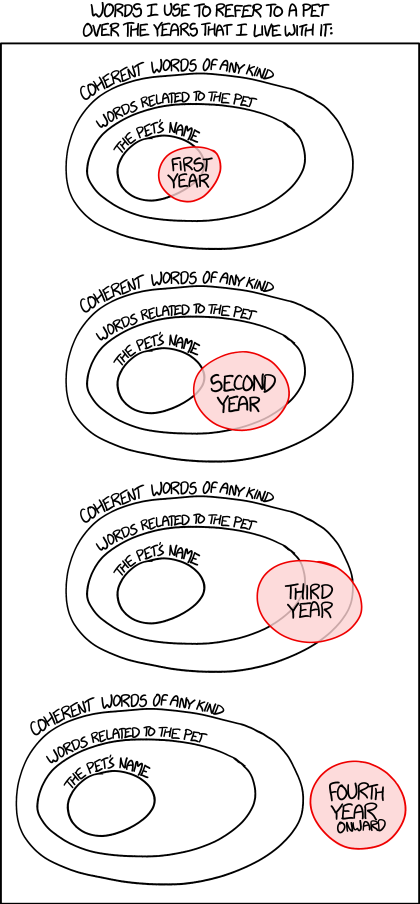 WORDS I USE TO REFER TO A PET
OVER THE YEARS THAT I LIVE WITH IT:
COHERENT WORDS OF ANY KIND
WORDS RELATED TO THE PET
THE PET'S NAME
FIRST
YEAR
COHERENT WORDS OF ANY KIND
WORDS RELATED TO THE PET
THE PET'S NAME
SECOND
YEAR
COHERENT WORDS OF ANY KIND
WORDS RELATED TO THE PET
THE PET'S NAME
THIRD
YEAR
COHERENT WORDS OF ANY KIND
WORDS RELATED TO THE PET
THE PET'S NAME
FOURTH
YEAR
ONWARD